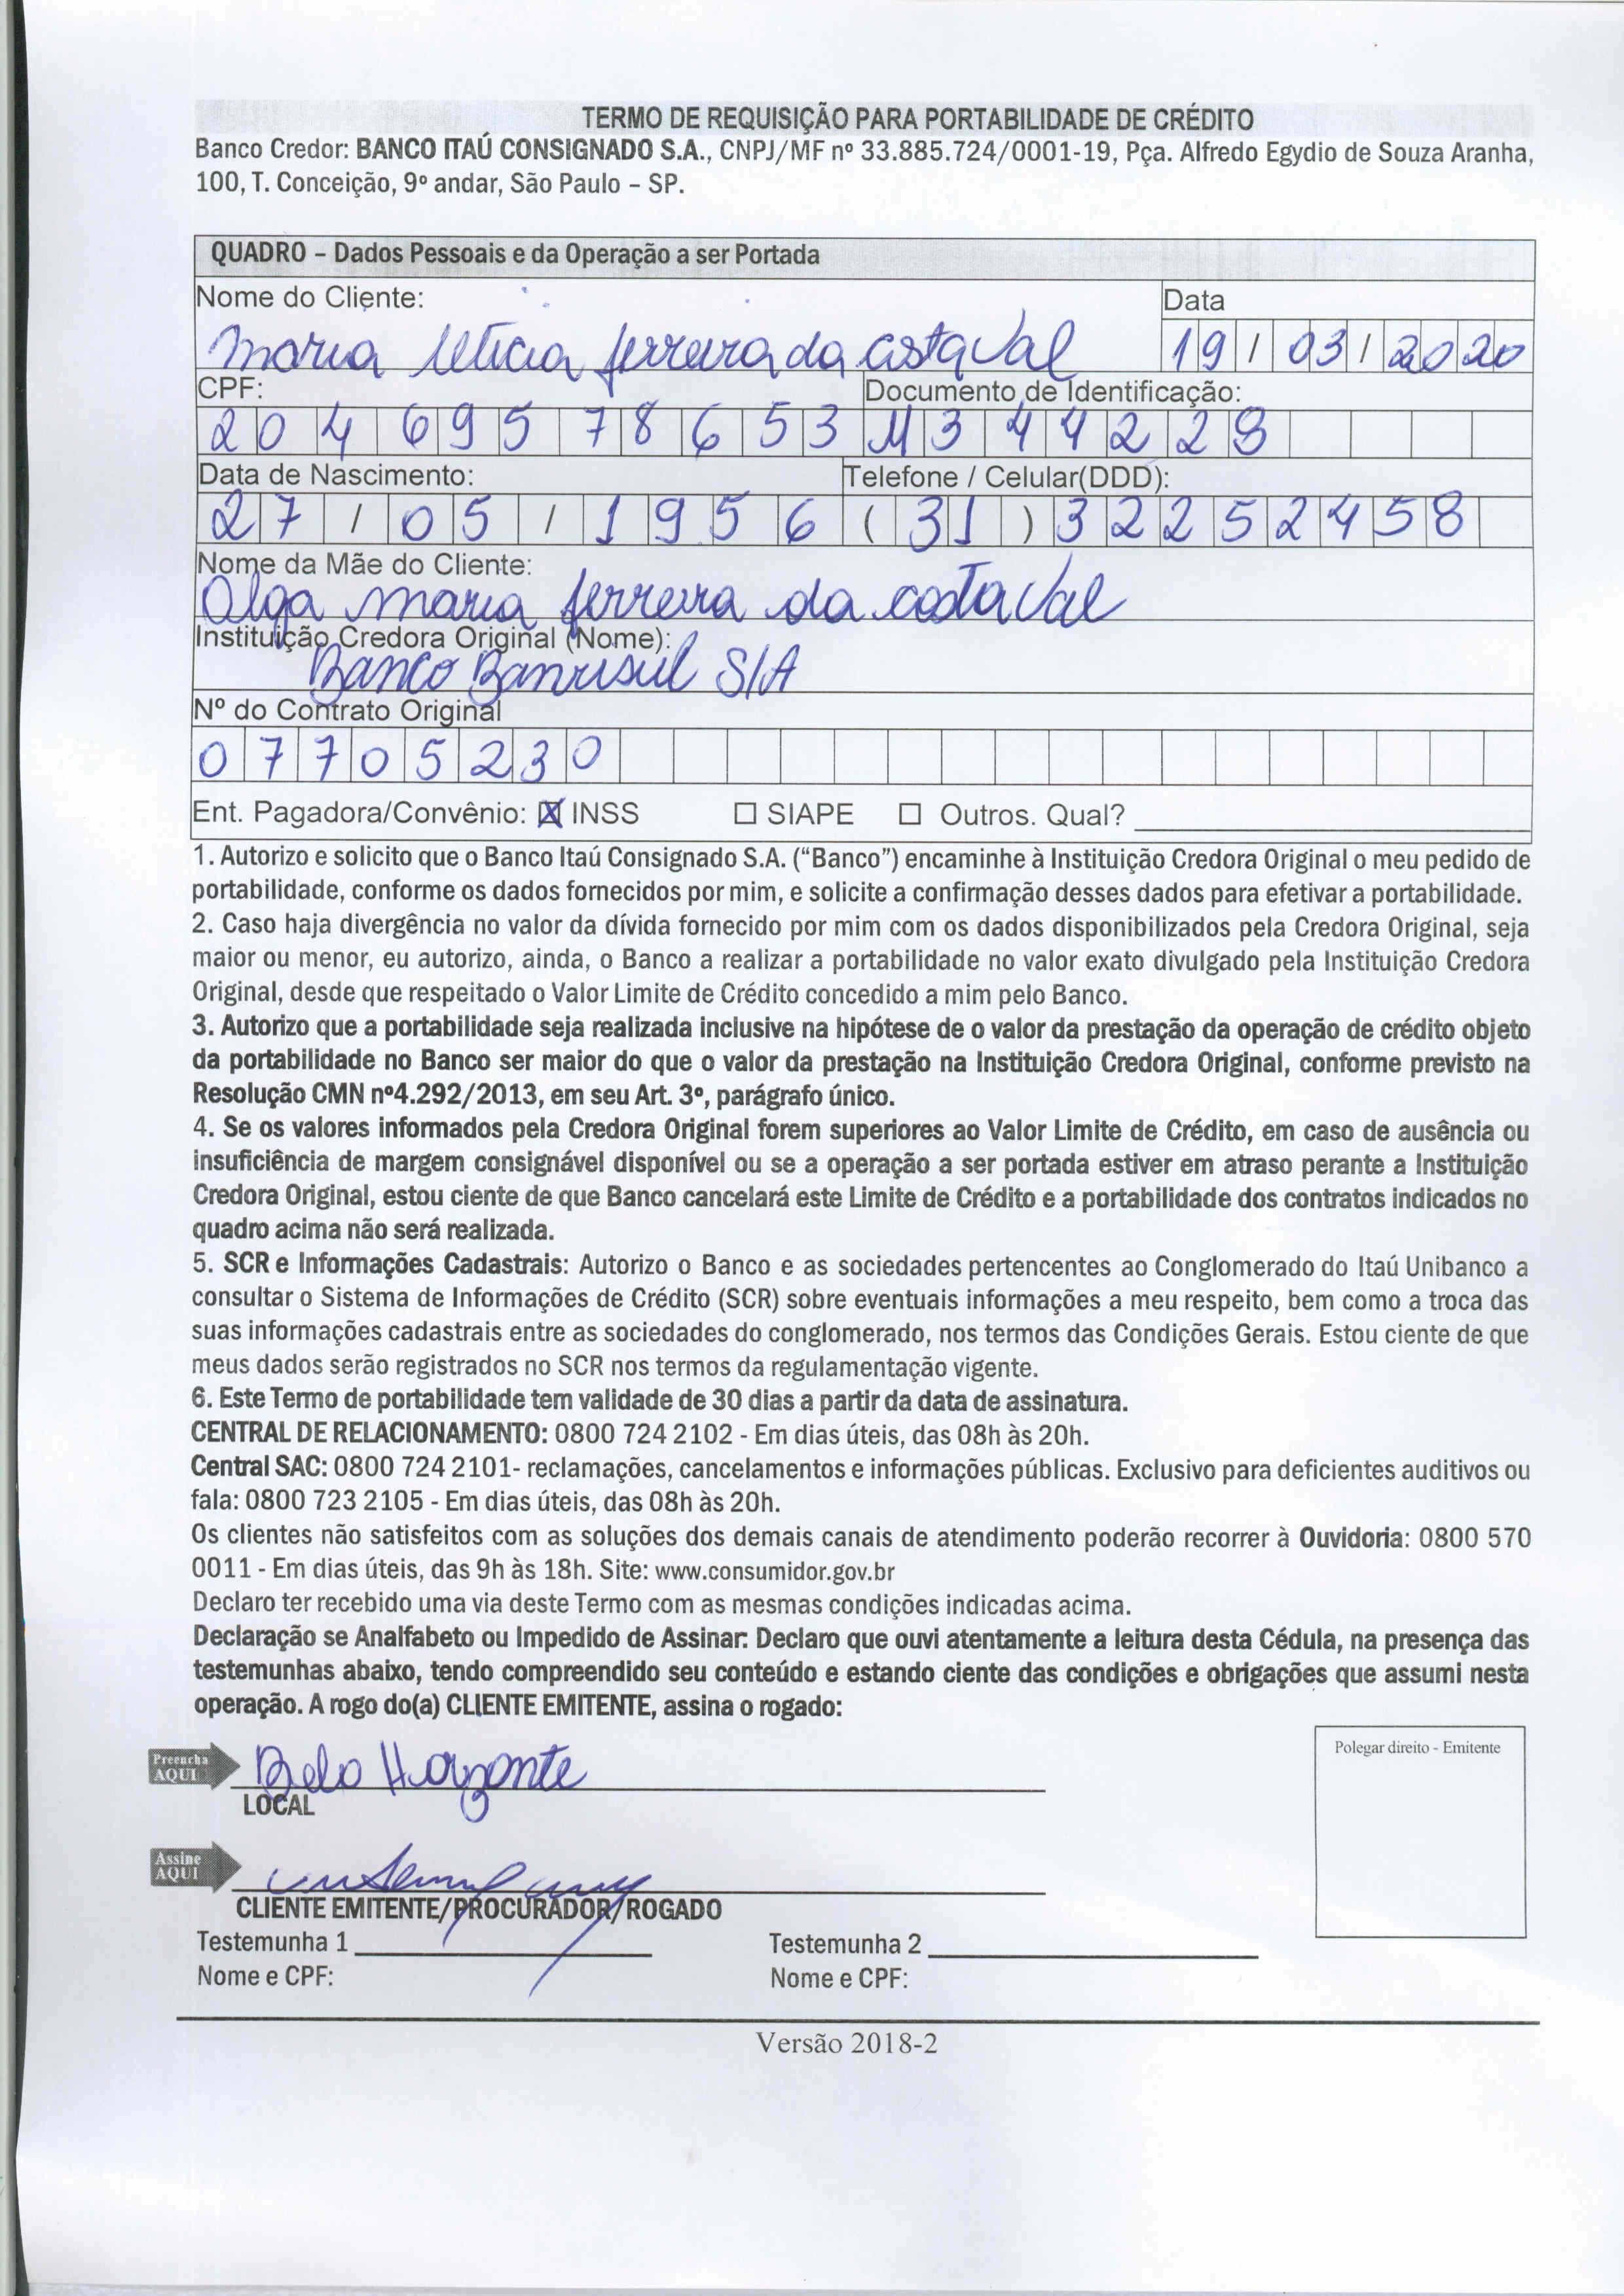 TERMO DE REQUISIÇÃO PARA PORTABILIDADE DE CRÉDITO
Banco Credor: BANCO ITAÚ CONSIGNADO S.A., CNPJ/MF nº 33.885.724/0001-19, Pça. Alfredo Egydio de Souza Aranha,
100, T. Conceição, 9º andar, São Paulo – SP.
QUADRO – Dados Pessoais e da Operação a ser Portada
Nome do Cliente: Data
Maria Leticia ferreira da costa Val 19/03/2020
CPF: Documento de Identificação:
20469578653 M344228
Data de Nascimento: Telefone / Celular(DDD):
27/05/1956 (31)32252458
Nome da Mãe do Cliente:
Olga maria ferreira da costa Val
Instituição Credora Original (Nome):
Banco Banrisul S/A
Nº do Contrato Original
07705230
Ent. Pagadora/Convênio: ☒ INSS ☐ SIAPE ☐ Outros. Qual?
1. Autorizo e solicito que o Banco Itaú Consignado S.A. (“Banco”) encaminhe à Instituição Credora Original o meu pedido de
portabilidade, conforme os dados fornecidos por mim, e solicite a confirmação desses dados para efetivar a portabilidade.
2. Caso haja divergência no valor da dívida fornecido por mim com os dados disponibilizados pela Credora Original, seja
maior ou menor, eu autorizo, ainda, o Banco a realizar a portabilidade no valor exato divulgado pela Instituição Credora
Original, desde que respeitado o Valor Limite de Crédito concedido a mim pelo Banco.
3. Autorizo que a portabilidade seja realizada inclusive na hipótese de o valor da prestação da operação de crédito objeto
da portabilidade no Banco ser maior do que o valor da prestação na Instituição Credora Original, conforme previsto na
Resolução CMN nº4.292/2013, em seu Art. 3º, parágrafo único.
4. Se os valores informados pela Credora Original forem superiores ao Valor Limite de Crédito, em caso de ausência ou
insuficiência de margem consignável disponível ou se a operação a ser portada estiver em atraso perante a Instituição
Credora Original, estou ciente de que Banco cancelará este Limite de Crédito e a portabilidade dos contratos indicados no
quadro acima não será realizada.
5. SCR e Informações Cadastrais: Autorizo o Banco e as sociedades pertencentes ao Conglomerado do Itaú Unibanco a
consultar o Sistema de Informações de Crédito (SCR) sobre eventuais informações a meu respeito, bem como a troca das
suas informações cadastrais entre as sociedades do conglomerado, nos termos das Condições Gerais. Estou ciente de que
meus dados serão registrados no SCR nos termos da regulamentação vigente.
6. Este Termo de portabilidade tem validade de 30 dias a partir da data de assinatura.
CENTRAL DE RELACIONAMENTO: 0800 724 2102 - Em dias úteis, das 08h às 20h.
Central SAC: 0800 724 2101- reclamações, cancelamentos e informações públicas. Exclusivo para deficientes auditivos ou
fala: 0800 723 2105 - Em dias úteis, das 08h às 20h.
Os clientes não satisfeitos com as soluções dos demais canais de atendimento poderão recorrer à Ouvidoria: 0800 570
0011 - Em dias úteis, das 9h às 18h. Site: www.consumidor.gov.br
Declaro ter recebido uma via deste Termo com as mesmas condições indicadas acima.
Declaração se Analfabeto ou Impedido de Assinar: Declaro que ouvi atentamente a leitura desta Cédula, na presença das
testemunhas abaixo, tendo compreendido seu conteúdo e estando ciente das condições e obrigações que assumi nesta
operação. A rogo do(a) CLIENTE EMITENTE, assina o rogado:
Polegar direito - Emitente
Preencha
AQUI
Belo Horizonte
LOCAL
Assine
AQUI
CLIENTE EMITENTE/PROCURADOR/ROGADO
Testemunha 1 Testemunha 2
Nome e CPF: Nome e CPF:
Versão 2018-2